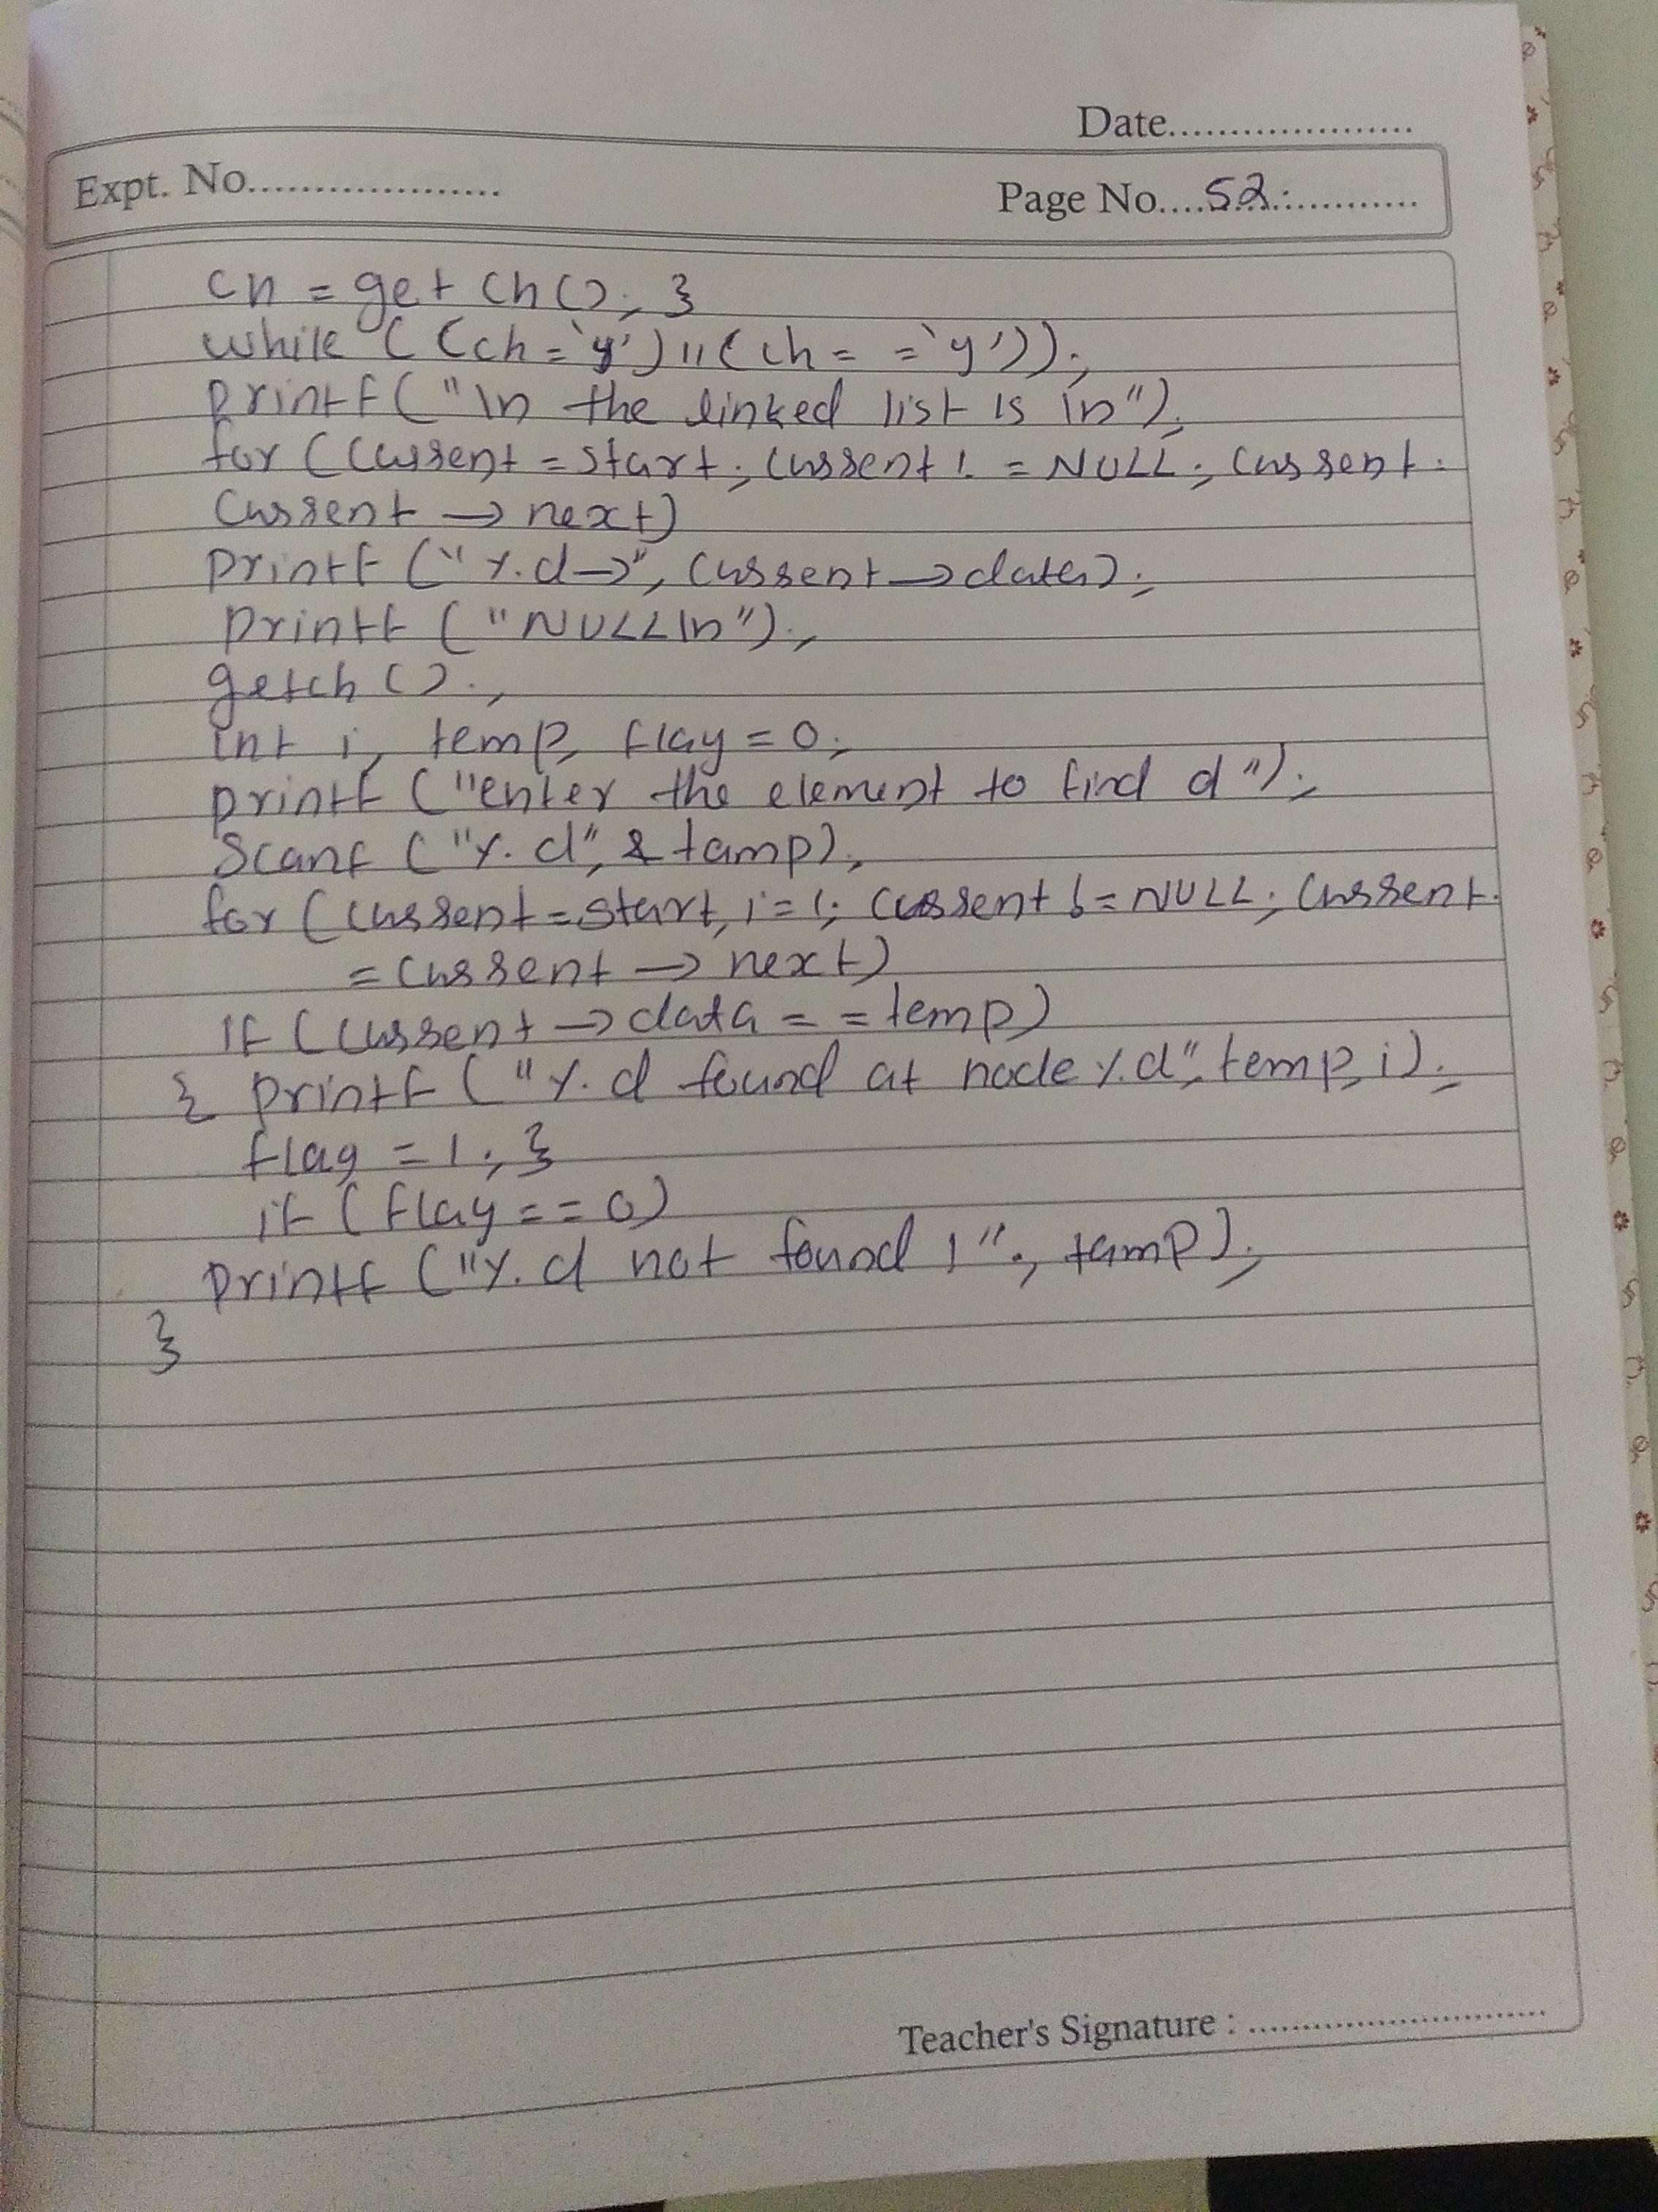 Date.....................
Expt. No...................
Page No....52............
ch = get ch(); }
while ((ch='y')||(ch= ='y'));
printf("\n the linked list is \n");
for (current = start; current != NULL; current =
current → next)
printf ("%d→", current → data);
printf ("NULL\n");
getch ();
int i, temp, flay = 0;
printf ("enter the element to find d");
Scanf ("%d", & tamp);
for (current = start, i = 1; current != NULL; current
= current → next)
if (current → data = = temp)
{ printf ("%d found at node %d", temp, i);
flag = 1; }
if (flay == 0)
printf ("%d not found !"; tamp);
}
Teacher's Signature : ..............................